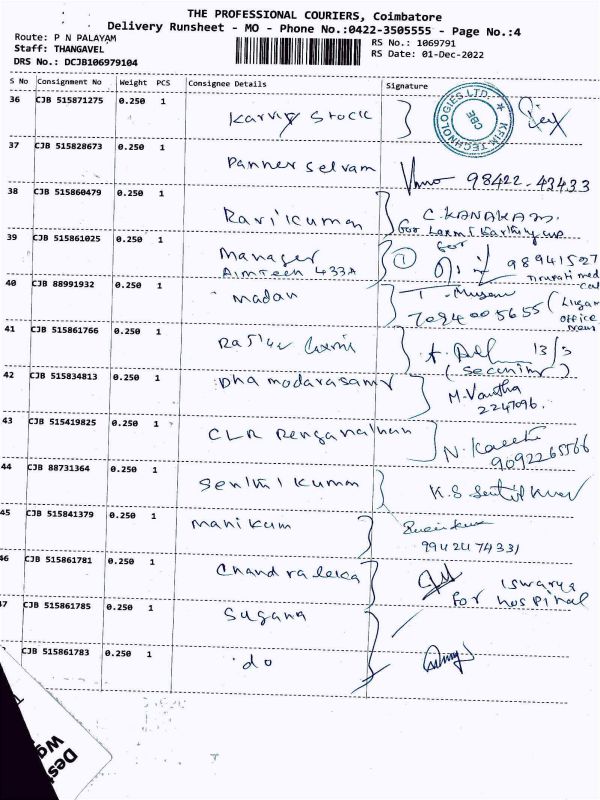 THE PROFESSIONAL COURIERS, Coimbatore
Delivery Runsheet - MO - Phone No.:0422-3505555 - Page No.:4
Route: P N PALAYAM
Staff: THANGAVEL
DRS No.: DCJB106979104
RS No.: 1069791
RS Date: 01-Dec-2022
S No Consignment No Weight PCS Consignee Details Signature
36 CJB 515871275 0.250 1 Karvy Stock
KFIN TECHNOLOGIES LTD. CBE
37 CJB 515828673 0.250 1 Panner Selvam 98422-43433
38 CJB 515860479 0.250 1 Ravi kumar C. KANAKAM.
for
39 CJB 515861025 0.250 1 Manager
Aimtech 433A
1 for 98941527
40 CJB 88991932 0.250 1 madan
7094005655
office
41 CJB 515861766 0.250 1 13/3
42 CJB 515834813 0.250 1 Dhamodarasamy M. Vanitha
2247096.
43 CJB 515419825 0.250 1 CLR Renganathan
9092265566
44 CJB 88731364 0.250 1 Senthil kumar K.S Senthil Kumar
45 CJB 515841379 0.250 1 manikum
9942474331
46 CJB 515861781 0.250 1 Chandraleka Iswarya
for hospital
47 CJB 515861785 0.250 1 Sugana
CJB 515861783 0.250 1 do